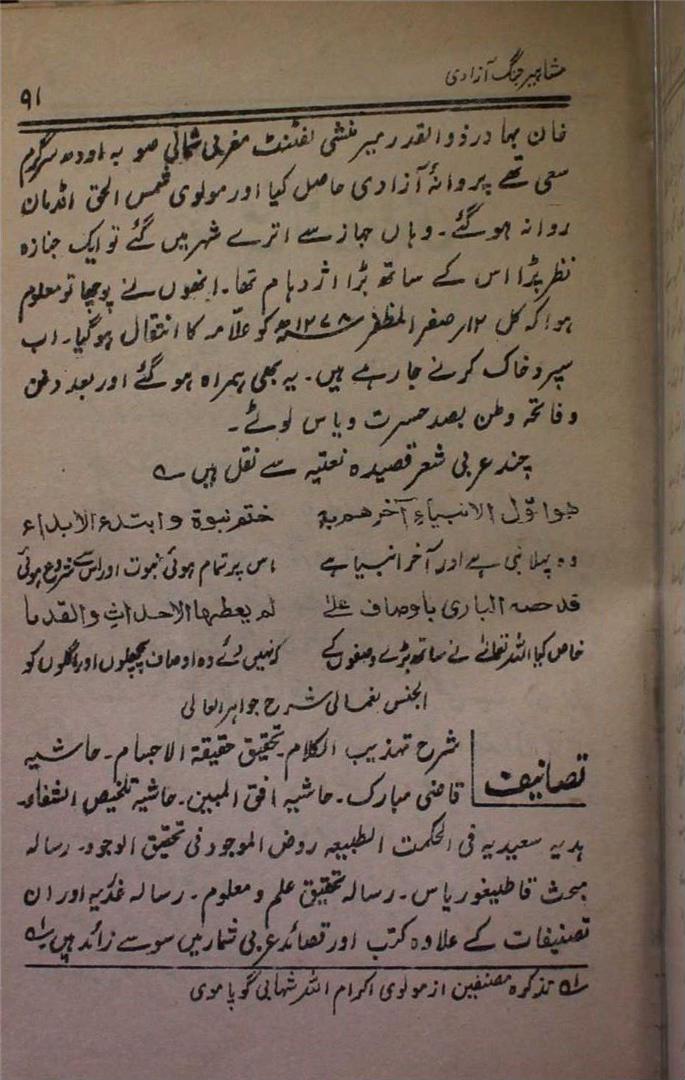 مشاہیر جنگ آزادی
۹۱
خان بہادر ذوالقدر میر منشی لفٹننٹ مغربی شمالی صوبہ اودھ سرگرم
سعی تھے پروانۂ آزادی حاصل کیا اور مولوی شمس الحق انڈمان
روانہ ہوگئے۔ وہاں جہاز سے اترے شہر میں گئے تو ایک جنازہ
نظر پڑا اس کے ساتھ بڑا اژدہام تھا۔ انھوں نے پوچھا تو معلوم
ہوا کہ کل ۱۲ر صفر المظفر ۱۲۷۸ھ کو علّامہ کا انتقال ہوگیا۔ اب
سپرد خاک کرنے جا رہے ہیں۔ یہ بھی ہمراہ ہو گئے اور بعد دفن
و فاتحہ وطن بصد حسرت ویاس لوٹے۔
چند عربی شعر قصیدہ نعتیہ سے نقل ہیں ؎
ھوا وّل الانبیاءِ آخرھم بہ ختم نبوة وابتدء الابداء
وہ پہلا نبی ہے اور آخر انبیا ہے اس پر تمام ہوئی نبوت اور اس سے شروع ہوئی
قد خصہ الباری باوصاف علےٰ لم یعطھا الاحداثِ والقدما
خاص کیا اللہ تعالےٰ نے ساتھ بڑے وصفوں کے کہ نہیں دئے وہ اوصاف پچھلوں اور اگلوں کو
الجنس الغالی شرح جواہر العالی
تصانیف
شرح تہذیب الکلام۔ تحقیق حقیقۃ الاجسام۔ حاشیہ
قاضی مبارک۔ حاشیہ افق المبین۔ حاشیہ تلخیص الشفاء۔
ہدیہ سعیدیہ فی الحکمت الطبیعہ روض الموجود فی تحقیق الوجود۔ رسالہ
مبحث قاطیغوریاس۔ رسالہ تحقیق علم و معلوم۔ رسالہ غدریہ اور ان
تصنیفات کے علاوہ کتب اور قصائد عربی شمار میں سو سے زائد ہیں ؎۱
؎۱ تذکرہ مصنفین از مولوی اکرام اللہ شہابی گوپاموی